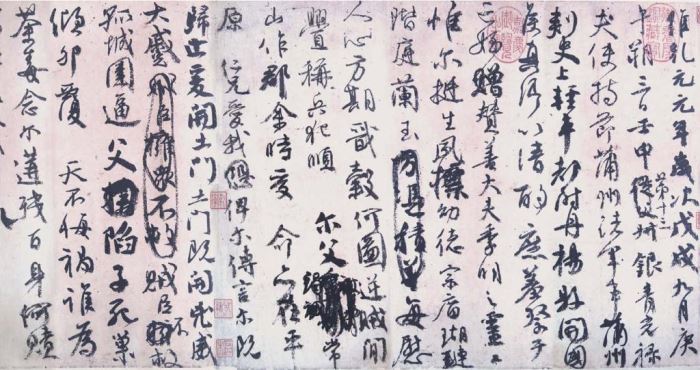 維乾元元年歲次戊戌九月庚
午朔三日壬申第十三叔銀青光祿
夫使持節蒲州諸軍事蒲州
刺史上輕車都尉丹楊縣開國
侯真卿以清酌庶羞祭于
亡姪贈贊善大夫季明之靈曰
惟爾挺生夙標幼德宗廟瑚璉
階庭蘭玉方憑積善每慰
人心方期戩穀何圖逆賊閒
釁稱兵犯順爾父竭誠常
山作郡余時受命亦在平
原仁兄愛我俾爾傳言爾既
歸止爰開土門土門既開凶威
大蹙賊臣擁眾不救賊臣不救
孤城圍逼父陷子死巢
傾卵覆天不悔禍誰為
荼毒念爾遘殘百身何贖